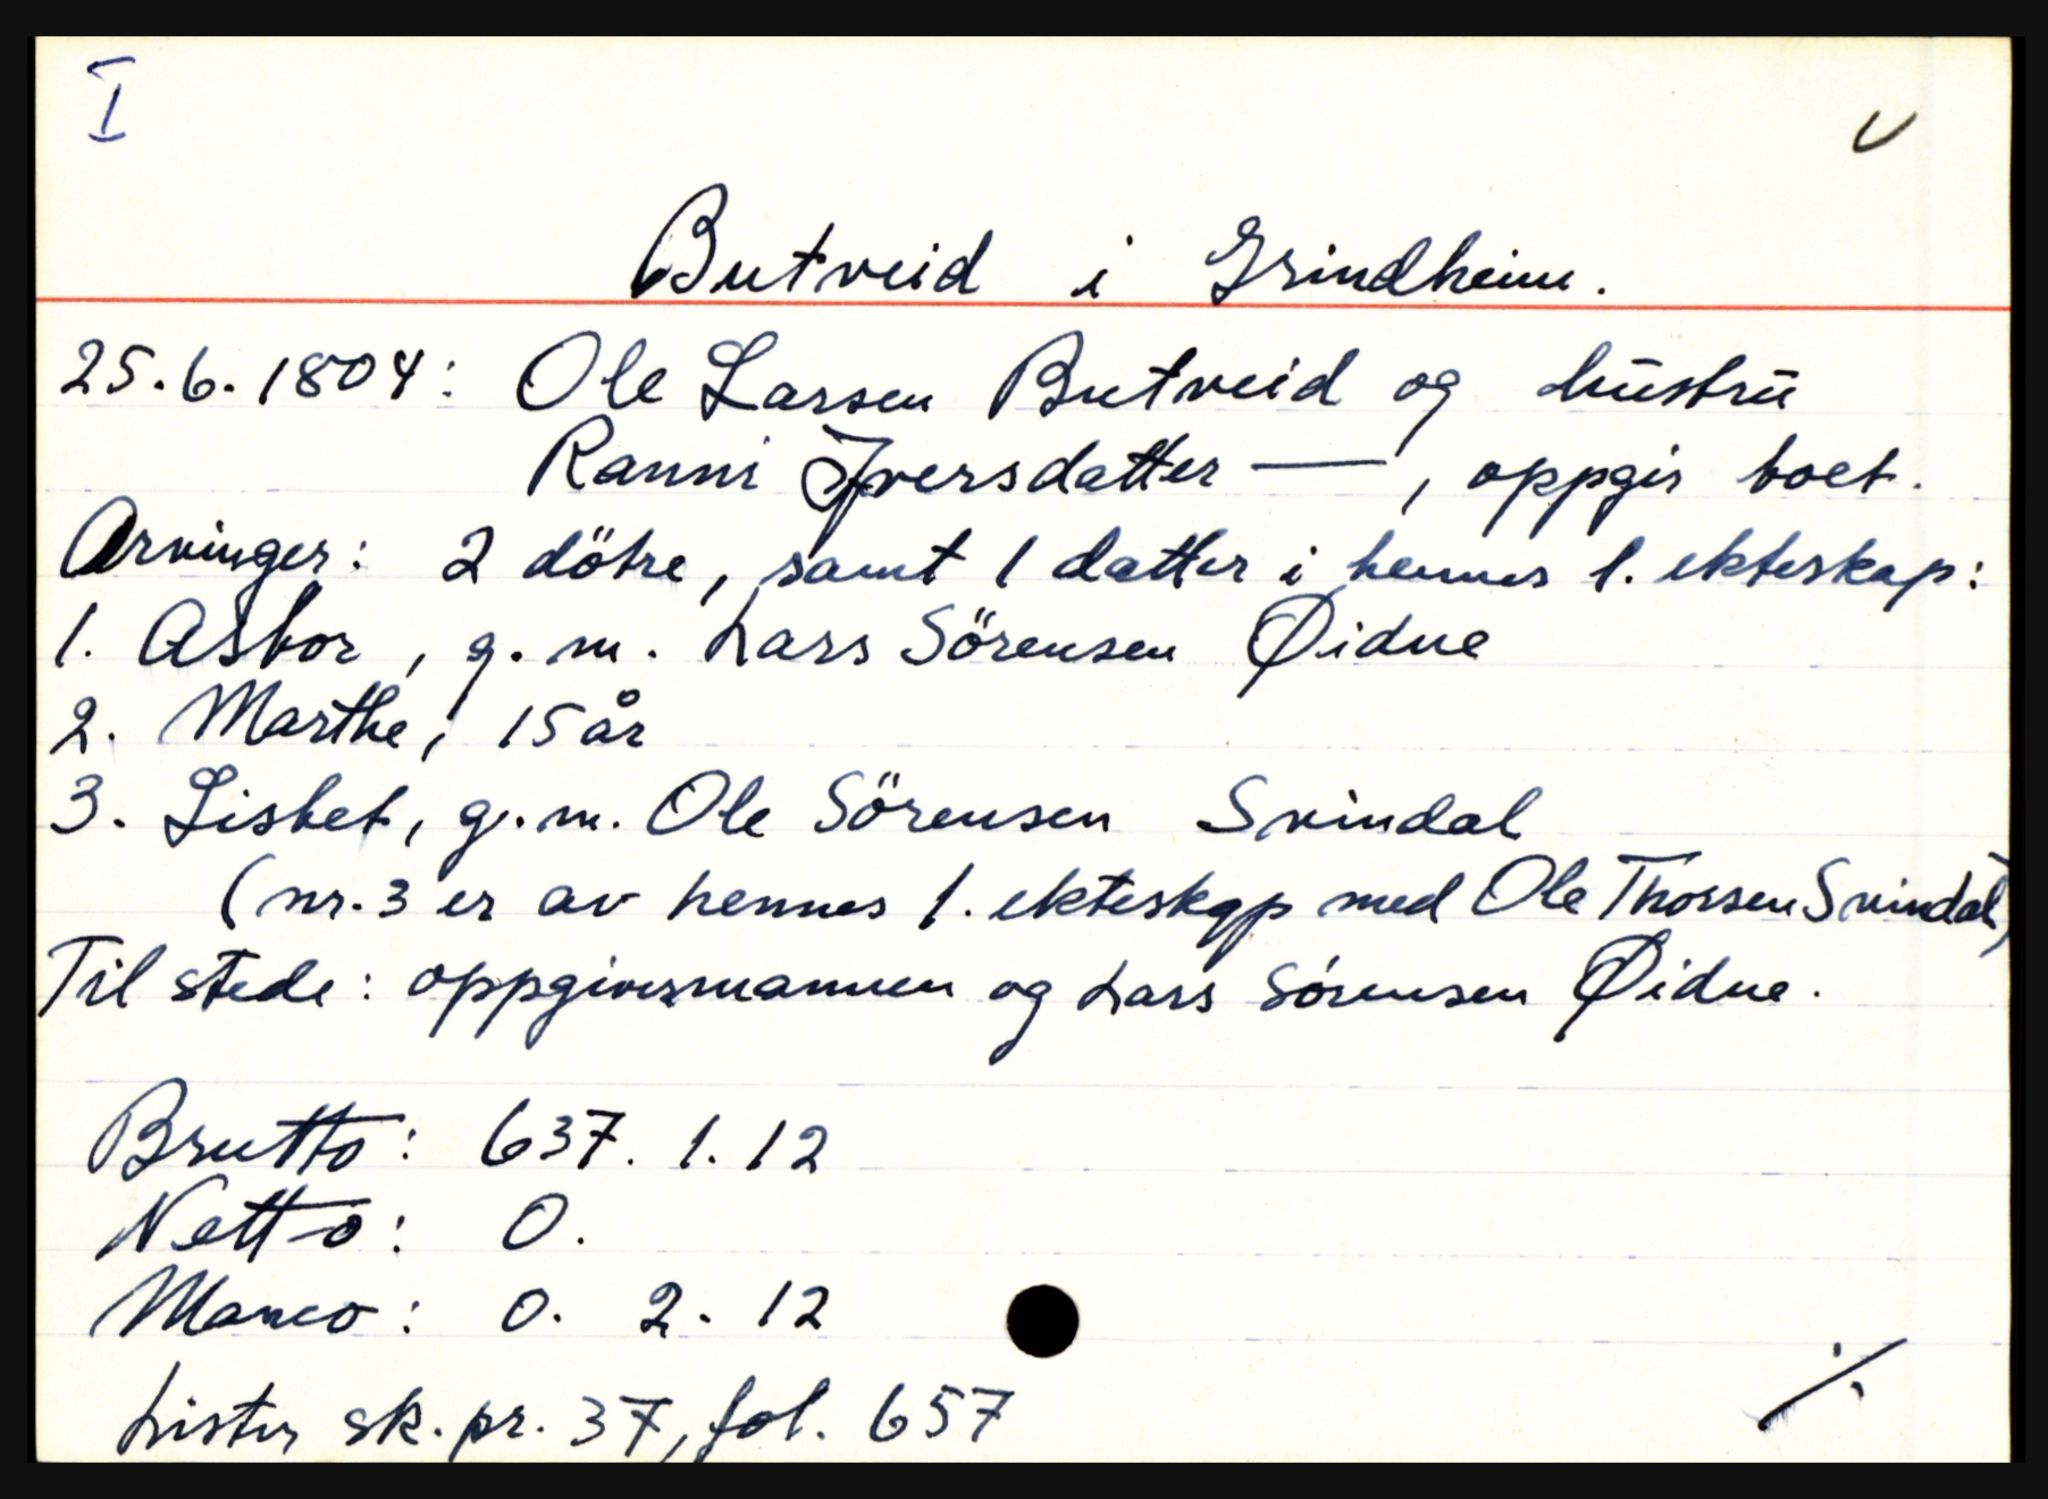 I
v
Butveid i Grindheim.
25.6.1804: Ole Larsen Butveid og hustru
Ranni Iversdatter —, oppgir boet.
Arvinger: 2 dötre, samt 1 datter i hennes 1. ekteskap:
1. Asbor, g.m. Lars Sörensen Øidne
2. Marthe, 15 år
3. Lisbet, g.m. Ole Sörensen Svindal
(nr. 3 er av hennes 1. ekteskap med Ole Thorsen Svindal)
Til stede: oppgivesmannen og Lars Sörensen Øidne.
Brutto: 637. 1. 12
Netto: 0.
Manco: 0. 2. 12
Lister sk. pr. 37, fol. 657
·/.